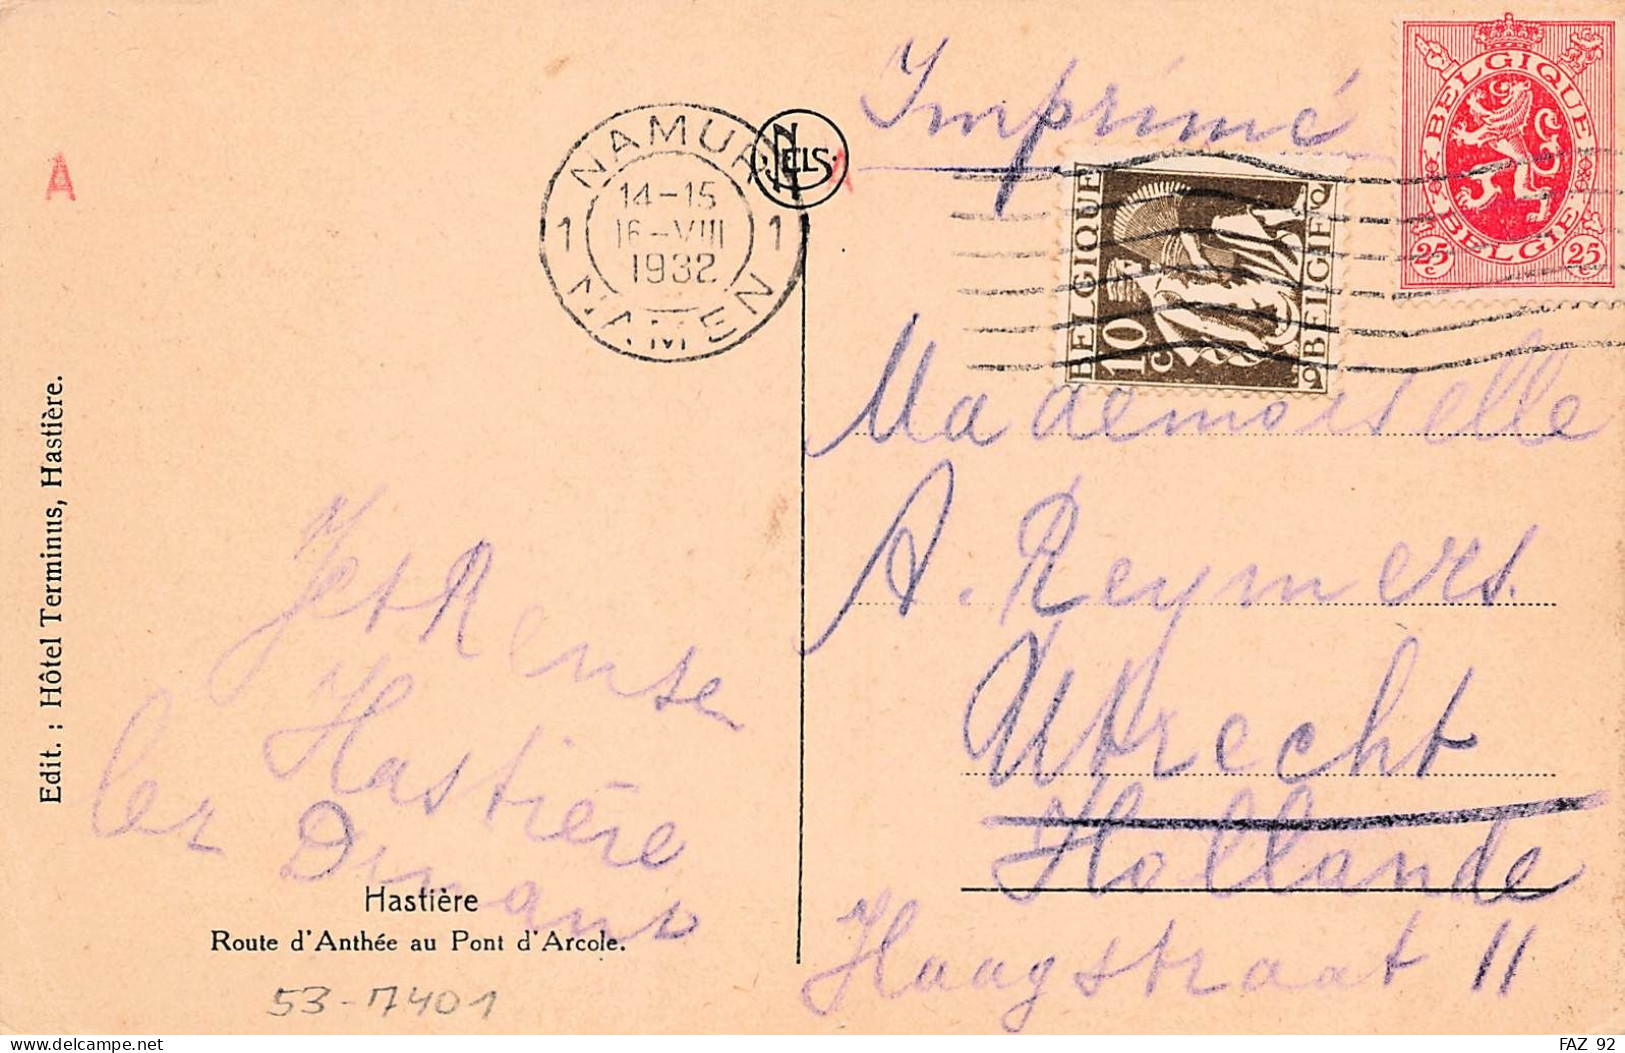 Imprimé
BELGIQUE
BELGIE
25 c 25 c
BELGIQUE
10 c
BELGIË
NAMUR 1
14-15
16-VIII
1932
1 NAMEN
NELS
A
A
Mademoiselle
A. Reymers.
Utrecht
Hollande
Haagstraat 11
Jet Rensen
Hastière
lez Dinant
Hastière
Route d'Anthée au Pont d'Arcole.
Edit. : Hôtel Terminus, Hastière.
53-7401
FAZ 92